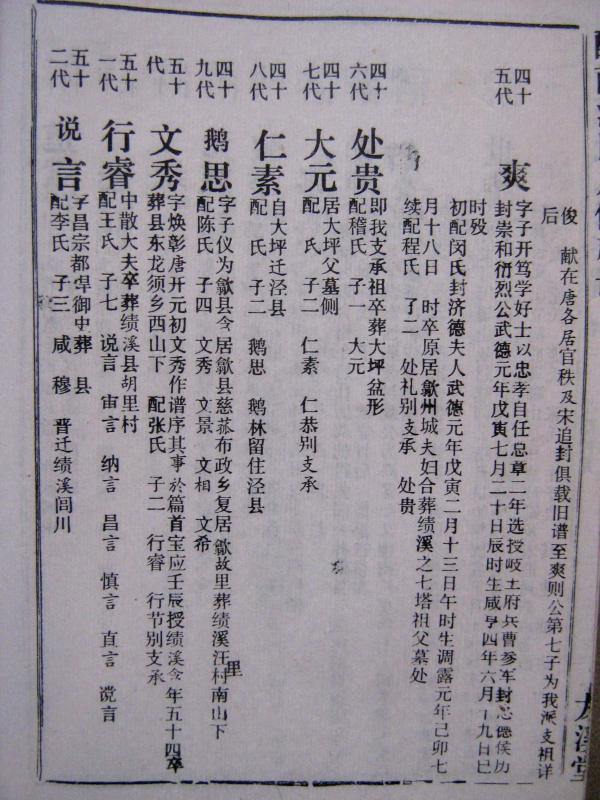 俊 献在唐各居官秩及宋追封俱载旧谱至爽则公第七子为我派支祖详
后
四十五代
爽
字子开笃学好士以忠孝自任总章二年选授岐王府兵曹参军封忠德侯历
封崇和衍烈公武德元年戊寅七月二十日辰时生咸亨四年六月十九日巳
时殁
初配闵氏封济德夫人武德元年戊寅二月十三日午时生调露元年己卯七
月十八日 时卒原居歙州城夫妇合葬绩溪之七塔祖父墓处
续配程氏 了二 处礼别支承 处贵
四十六代
处贵
即我支承祖卒葬大坪盆形
配稽氏 子一 大元
四十七代
大元
居大坪父墓侧
配 氏 子二 仁素 仁恭别支承
四十八代
仁素
自大坪迁泾县
配 氏 子二 鹅思 鹅林留住泾县
四十九代
鹅思
字子仪为歙县令居歙县慈菰布政乡复居歙故里葬绩溪汪村南山下
里
配陈氏 子四 文秀 文景 文相 文希
五十代
文秀
字焕彰唐开元初文秀作谱序其事於篇首宝应壬辰授绩溪令年五十四卒
葬县东龙须乡西山下 配张氏 子二 行睿 行节别支承
五十一代
行睿
中散大夫卒葬绩溪县胡里村
配王氏 子七 说言 宙言 纳言 昌言 慎言 直言 谠言
五十二代
说言
字昌宗都捍御中葬 县
配李氏 子三 咸 穆 晋迁绩溪闾川